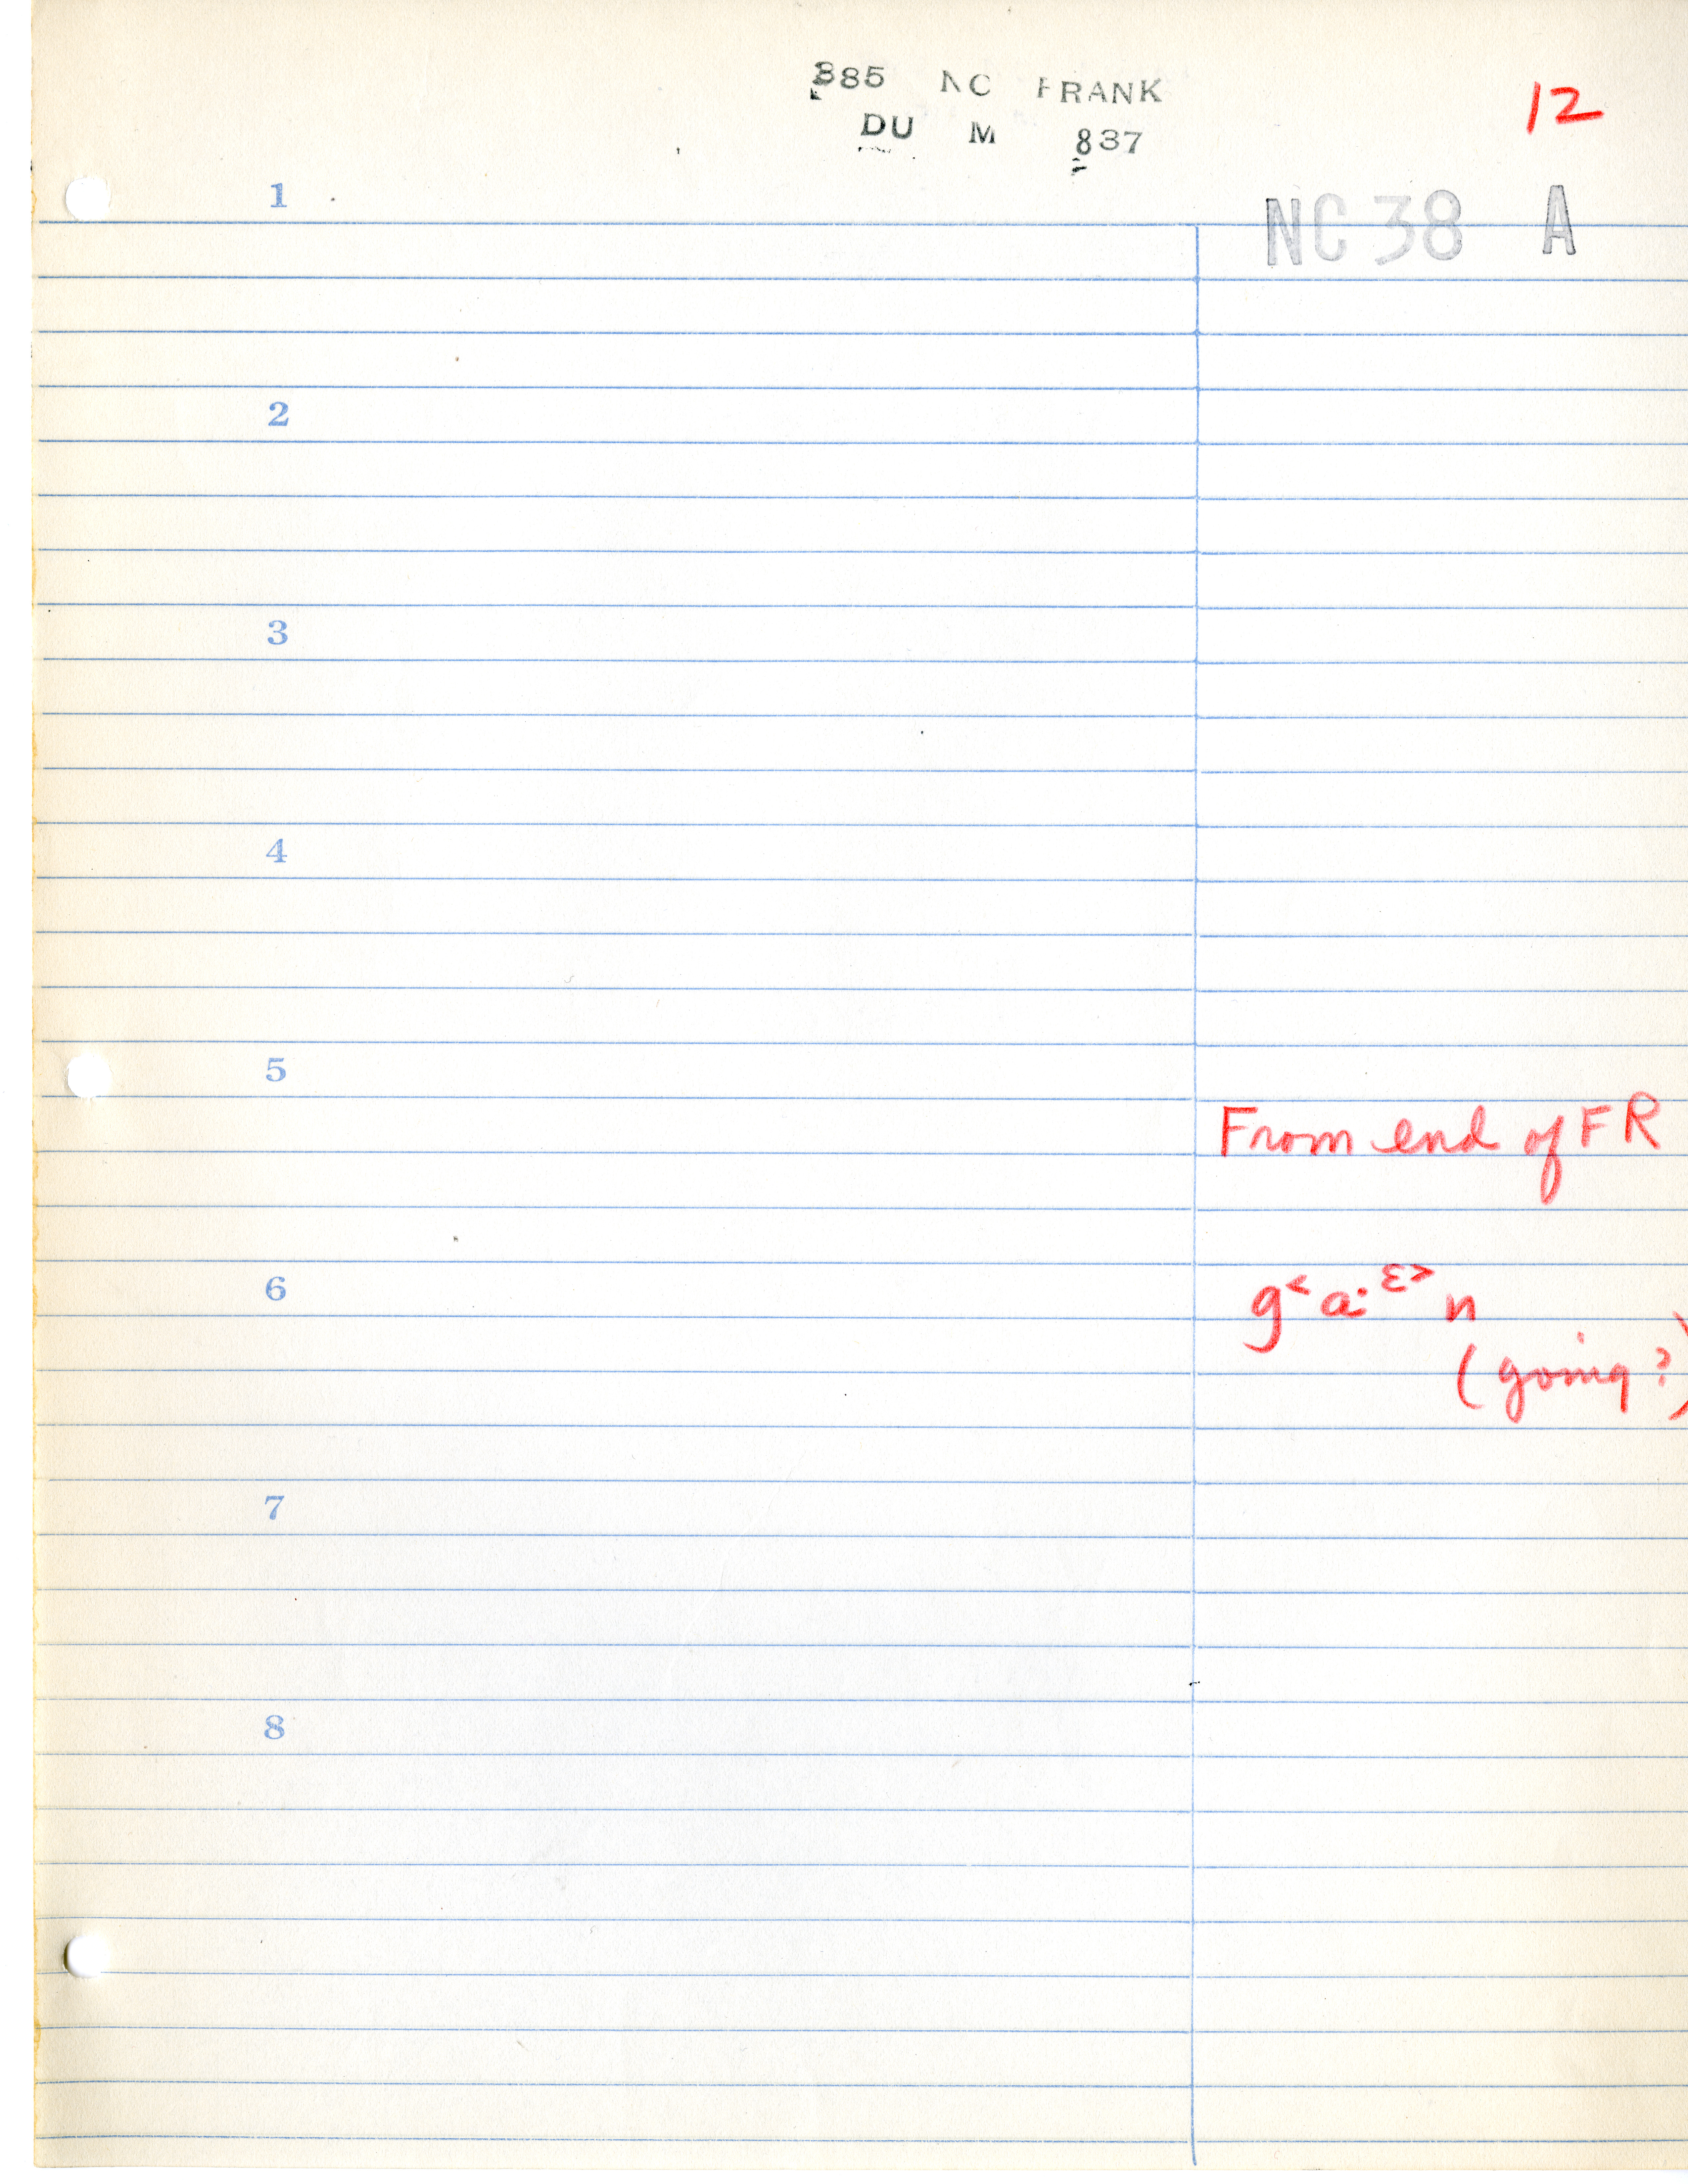 885 NC FRANK
DU M 837
12
NC 38 A
1
2
3
4
5
From end of FR
6
g<a·ɛ>n
(going?)
7
8